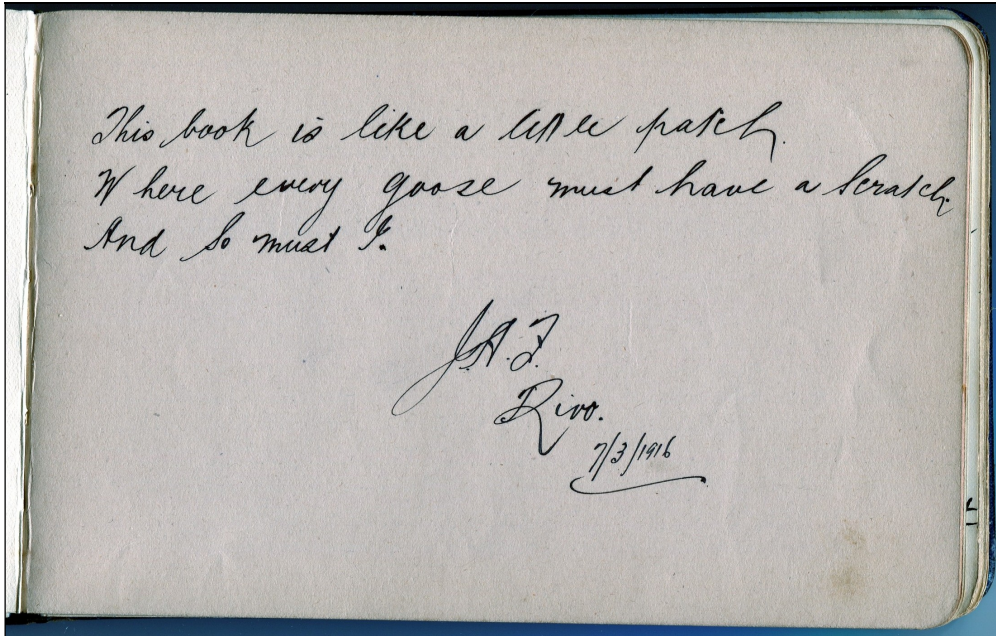 This book is like a little patch.
Where every goose must have a Scratch.
And So must I.
J.A.F.
Rivo.
7/3/1916